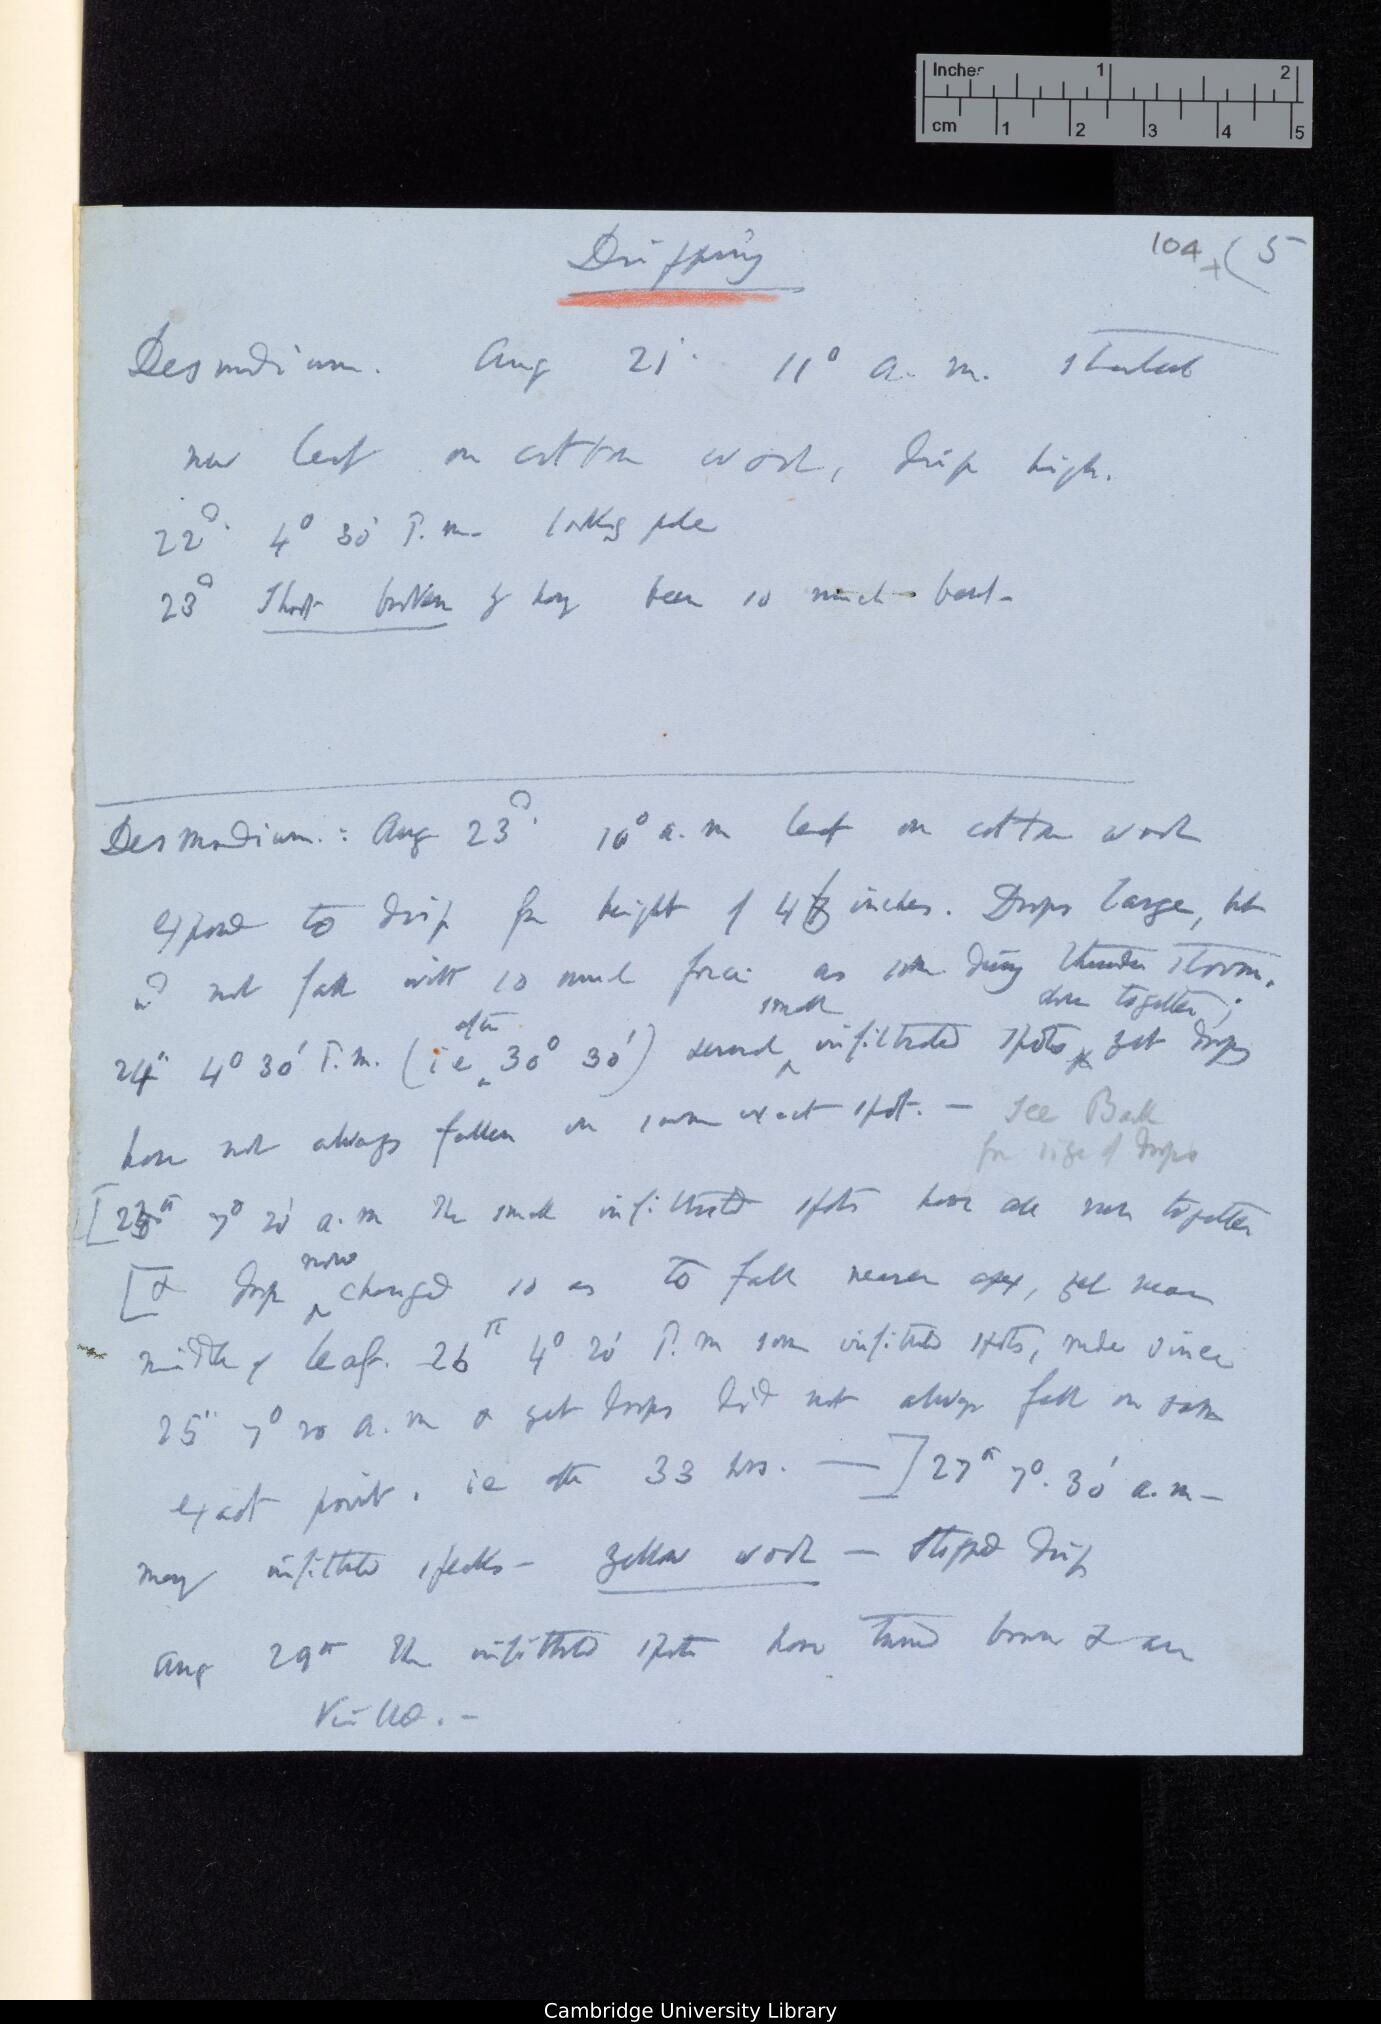 Inches 1 2
cm 1 2 3 4 5
Dripping
104 (5
Desmodium. Aug 21. 11° a.m. started
new leaf on cotton wool, drip high.
22d. 4° 30' P.m. looking pale
23d Shoot broken by hvg been so much bent.
Desmodium.: Aug 23d. 10° a.m leaf on cotton wool
exposed to drip from height of 4 inches. Drops large, but
did not fall with so much force as some during thunder storm.
small close together;
after
24th 4° 30' P.m. (ie 30° 30') several infiltrated spots yet drops
have not always fallen on same exact spot. — See Back
for size of drops
[25th 7° 20' a.m The small infiltrated spots have all run together
now
[& drop changed so as to fall nearer apex, yet near
middle of leaf. 26th 4° 20' P.m some infiltrated spots, made since
25th 7° 20 a.m & yet drops did not always fall on same
exact point. ie after 33 hrs. —] 27th 7°. 30' a.m —
many infiltrated specks — yellow wool — Stopped drip
Aug 29th The infiltrated spots have turned brown & are
killed. —
Cambridge University Library